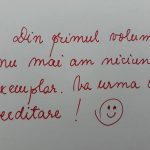 Din primul volum
nu mai am niciun
exemplar. Va urma o
reeditare !